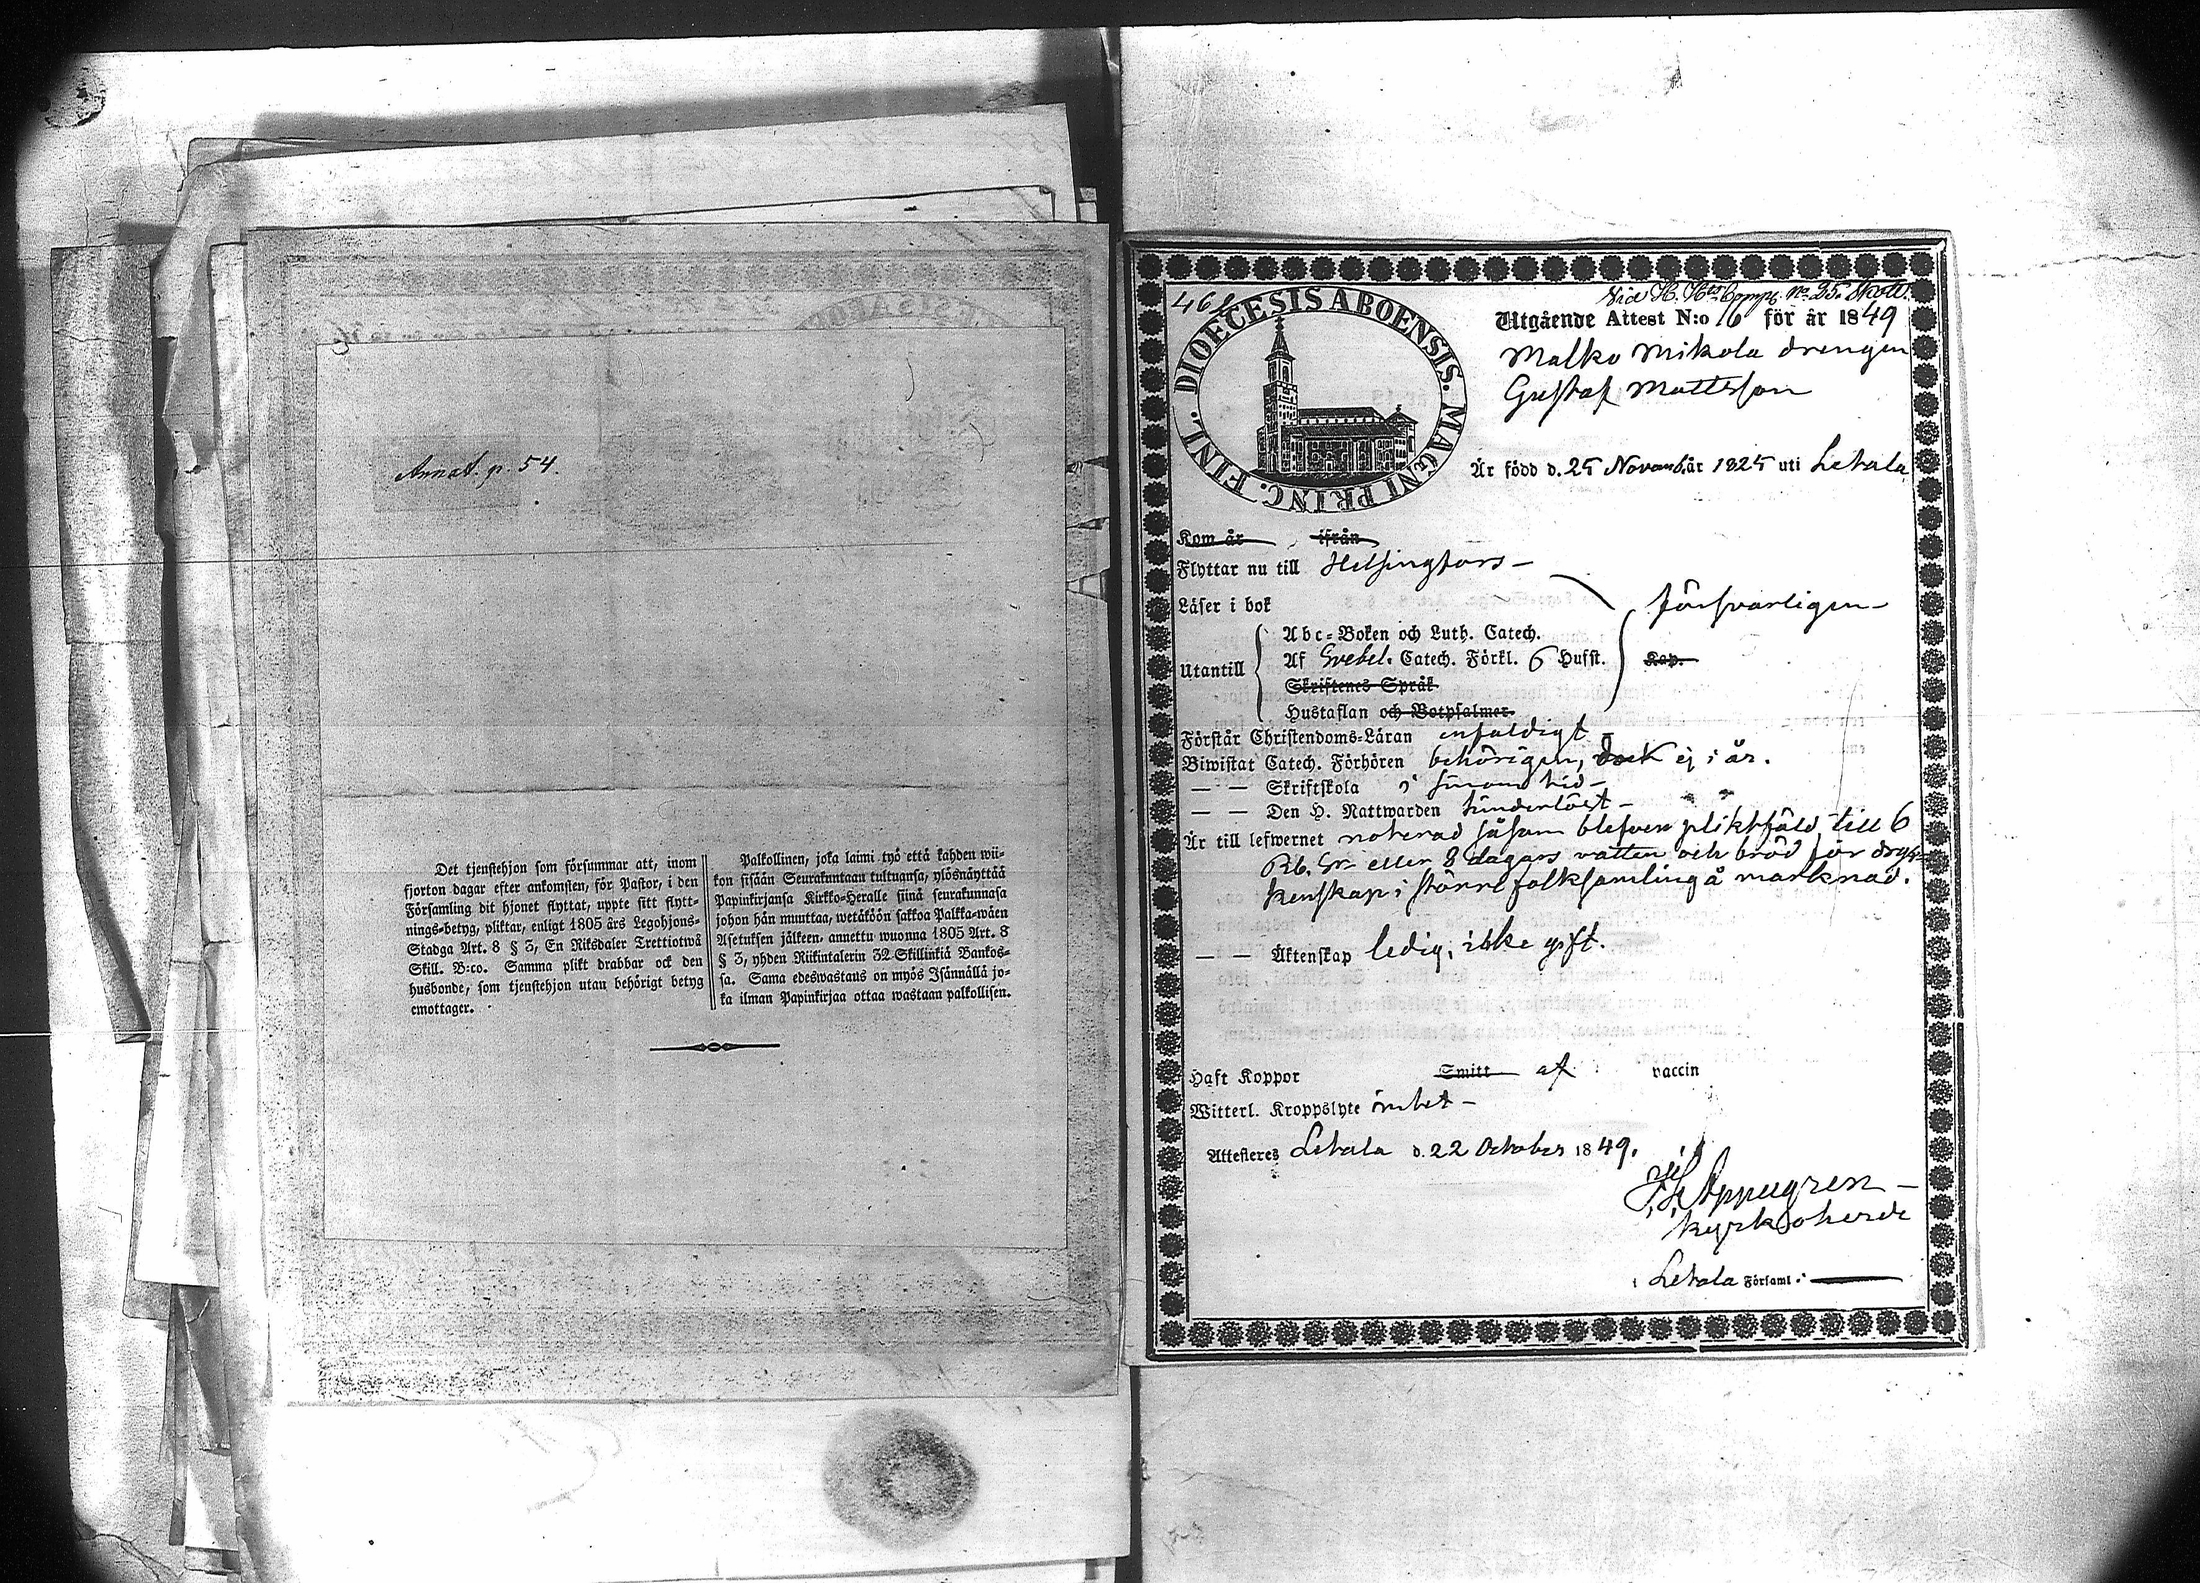 Annot. p. 54.
Det tjenstehjon som försummar att, inom
fjorton dagar efter ankomsten, för Pastor, i den
Församling dit hjonet flyttat, uppte sitt flytt-
nings-betyg, pliktar, enligt 1805 års Legohjons-
Stadga Art. 8 § 3, En Riksdaler Trettiotwå
Skill. B:co. Samma plikt drabbar ock den
husbonde, som tjenstehjon utan behörigt betyg
emottager.
Palkollinen, joka laimi työ että kahden wii-
kon sisään Seurakuntaan tultuansa, ylösnäyttää
Papinkirjansa Kirkko-Herralle siinä seurakunnasa
johon hän muuttaa, wetäköön sakkoa Palkka-wäen
Asetuksen jälkeen, annettu wuonna 1805 Art. 8
§ 3, yhden Riikintalerin 32 Skillinkiä Bankos-
sa. Sama edeswastaus on myös Isännällä jo-
ka ilman Papinkirjaa ottaa wastaan palkollisen.
DIOECESIS ABOENSIS. MAGNI PRINC. FINL.
Utgående Attest N:o 16 för år 1849
Malko Mikola drengen
Gustaf Mattsson
Är född d. 25 Novemb. år 1825 uti Letala
Kom år ifrån
Flyttar nu till Helsingfors –
Läser i bok försvarligen –
Utantill
Abc-Boken och Luth. Catech.
Af Grebel. Catech. Förkl. 6 Husst. Kap.
Skriftenes Språk
Hustaflan och Botpsalmer.
Förstår Christendoms-Läran enfaldigt –
Biwistat Catech. Förhören behörigen, dock ej i år.
— — Skriftskola i sinom tid –
— — Den H. Nattwarden hinderlöst –
Är till lefwernet noterad såsom blefven pliktfäld till 6
Rb. Sr. eller 8 dagars vatten och bröd för dryc-
kenskap i större folksamling å marknad.
— — Äktenskap ledig, icke gift.
Haft Koppor Smitt af vaccin
Witterl. Kroppslyte intet –
Attesteres Letala d. 22 October 1849.
Kyrkoherde
i Letala Församl.